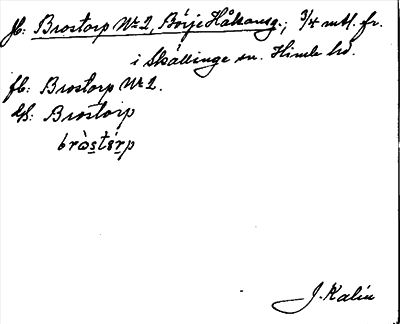 jb: Brostorp Nr 2, Börje Håkansg.; 3/4 mtl. fr.
i Skällinge sn. Himle hd.
fb: Brostorp Nr 2.
uf: Brostorp
bròstórp
J. Kalén